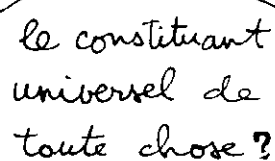 le constituant
universel de
toute chose?